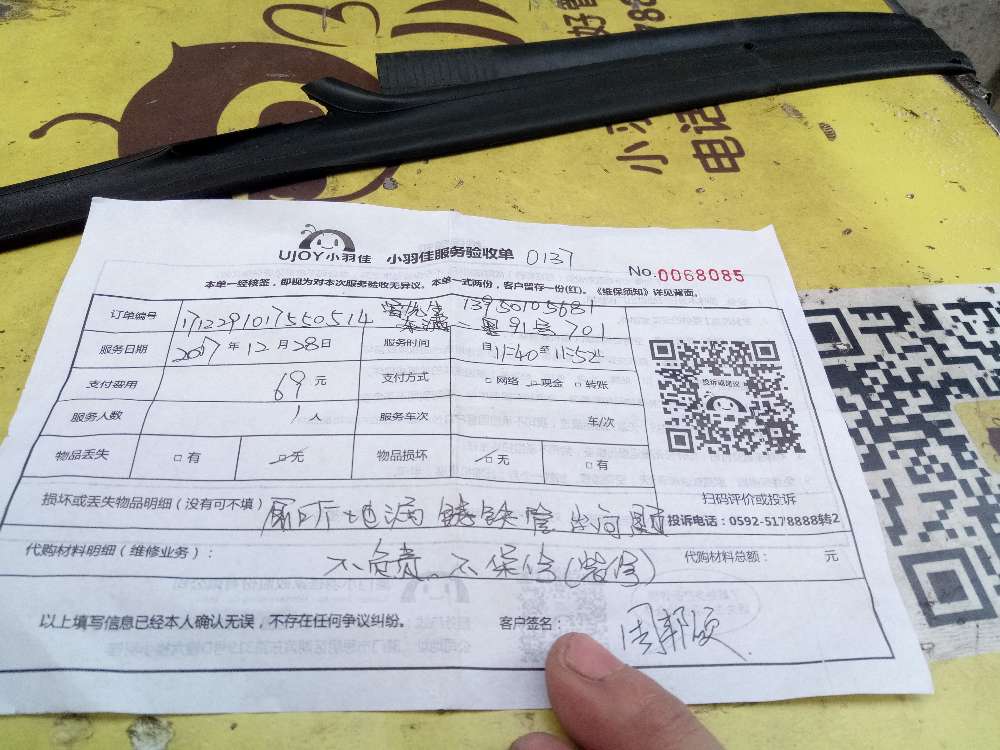 好管
788
小羽
电话
UJOY小羽佳 小羽佳服务验收单 0137
No.0068085
本单一经核签,即视为对本次服务验收无异议。本单一式两份,客户留存一份(红)。《维保须知》详见背面。
订单编号 1712291017550514 13950105681
二里91号 701
服务日期 2017年12月28日 服务时间 自11:40至11:52
支付费用 69元 支付方式 □网络 现金 □转账
服务人数 1人 服务车次 车/次
物品丢失 □有 无 物品损坏 无 □有
投诉或建议
扫码评价或投诉
损坏或丢失物品明细(没有可不填) 厕所地漏铸铁管出问题 投诉电话:0592-5178888转2
代购材料明细(维修业务): 不负责、不保修 代购材料总额: 元
以上填写信息已经本人确认无误,不存在任何争议纠纷。 客户签名: